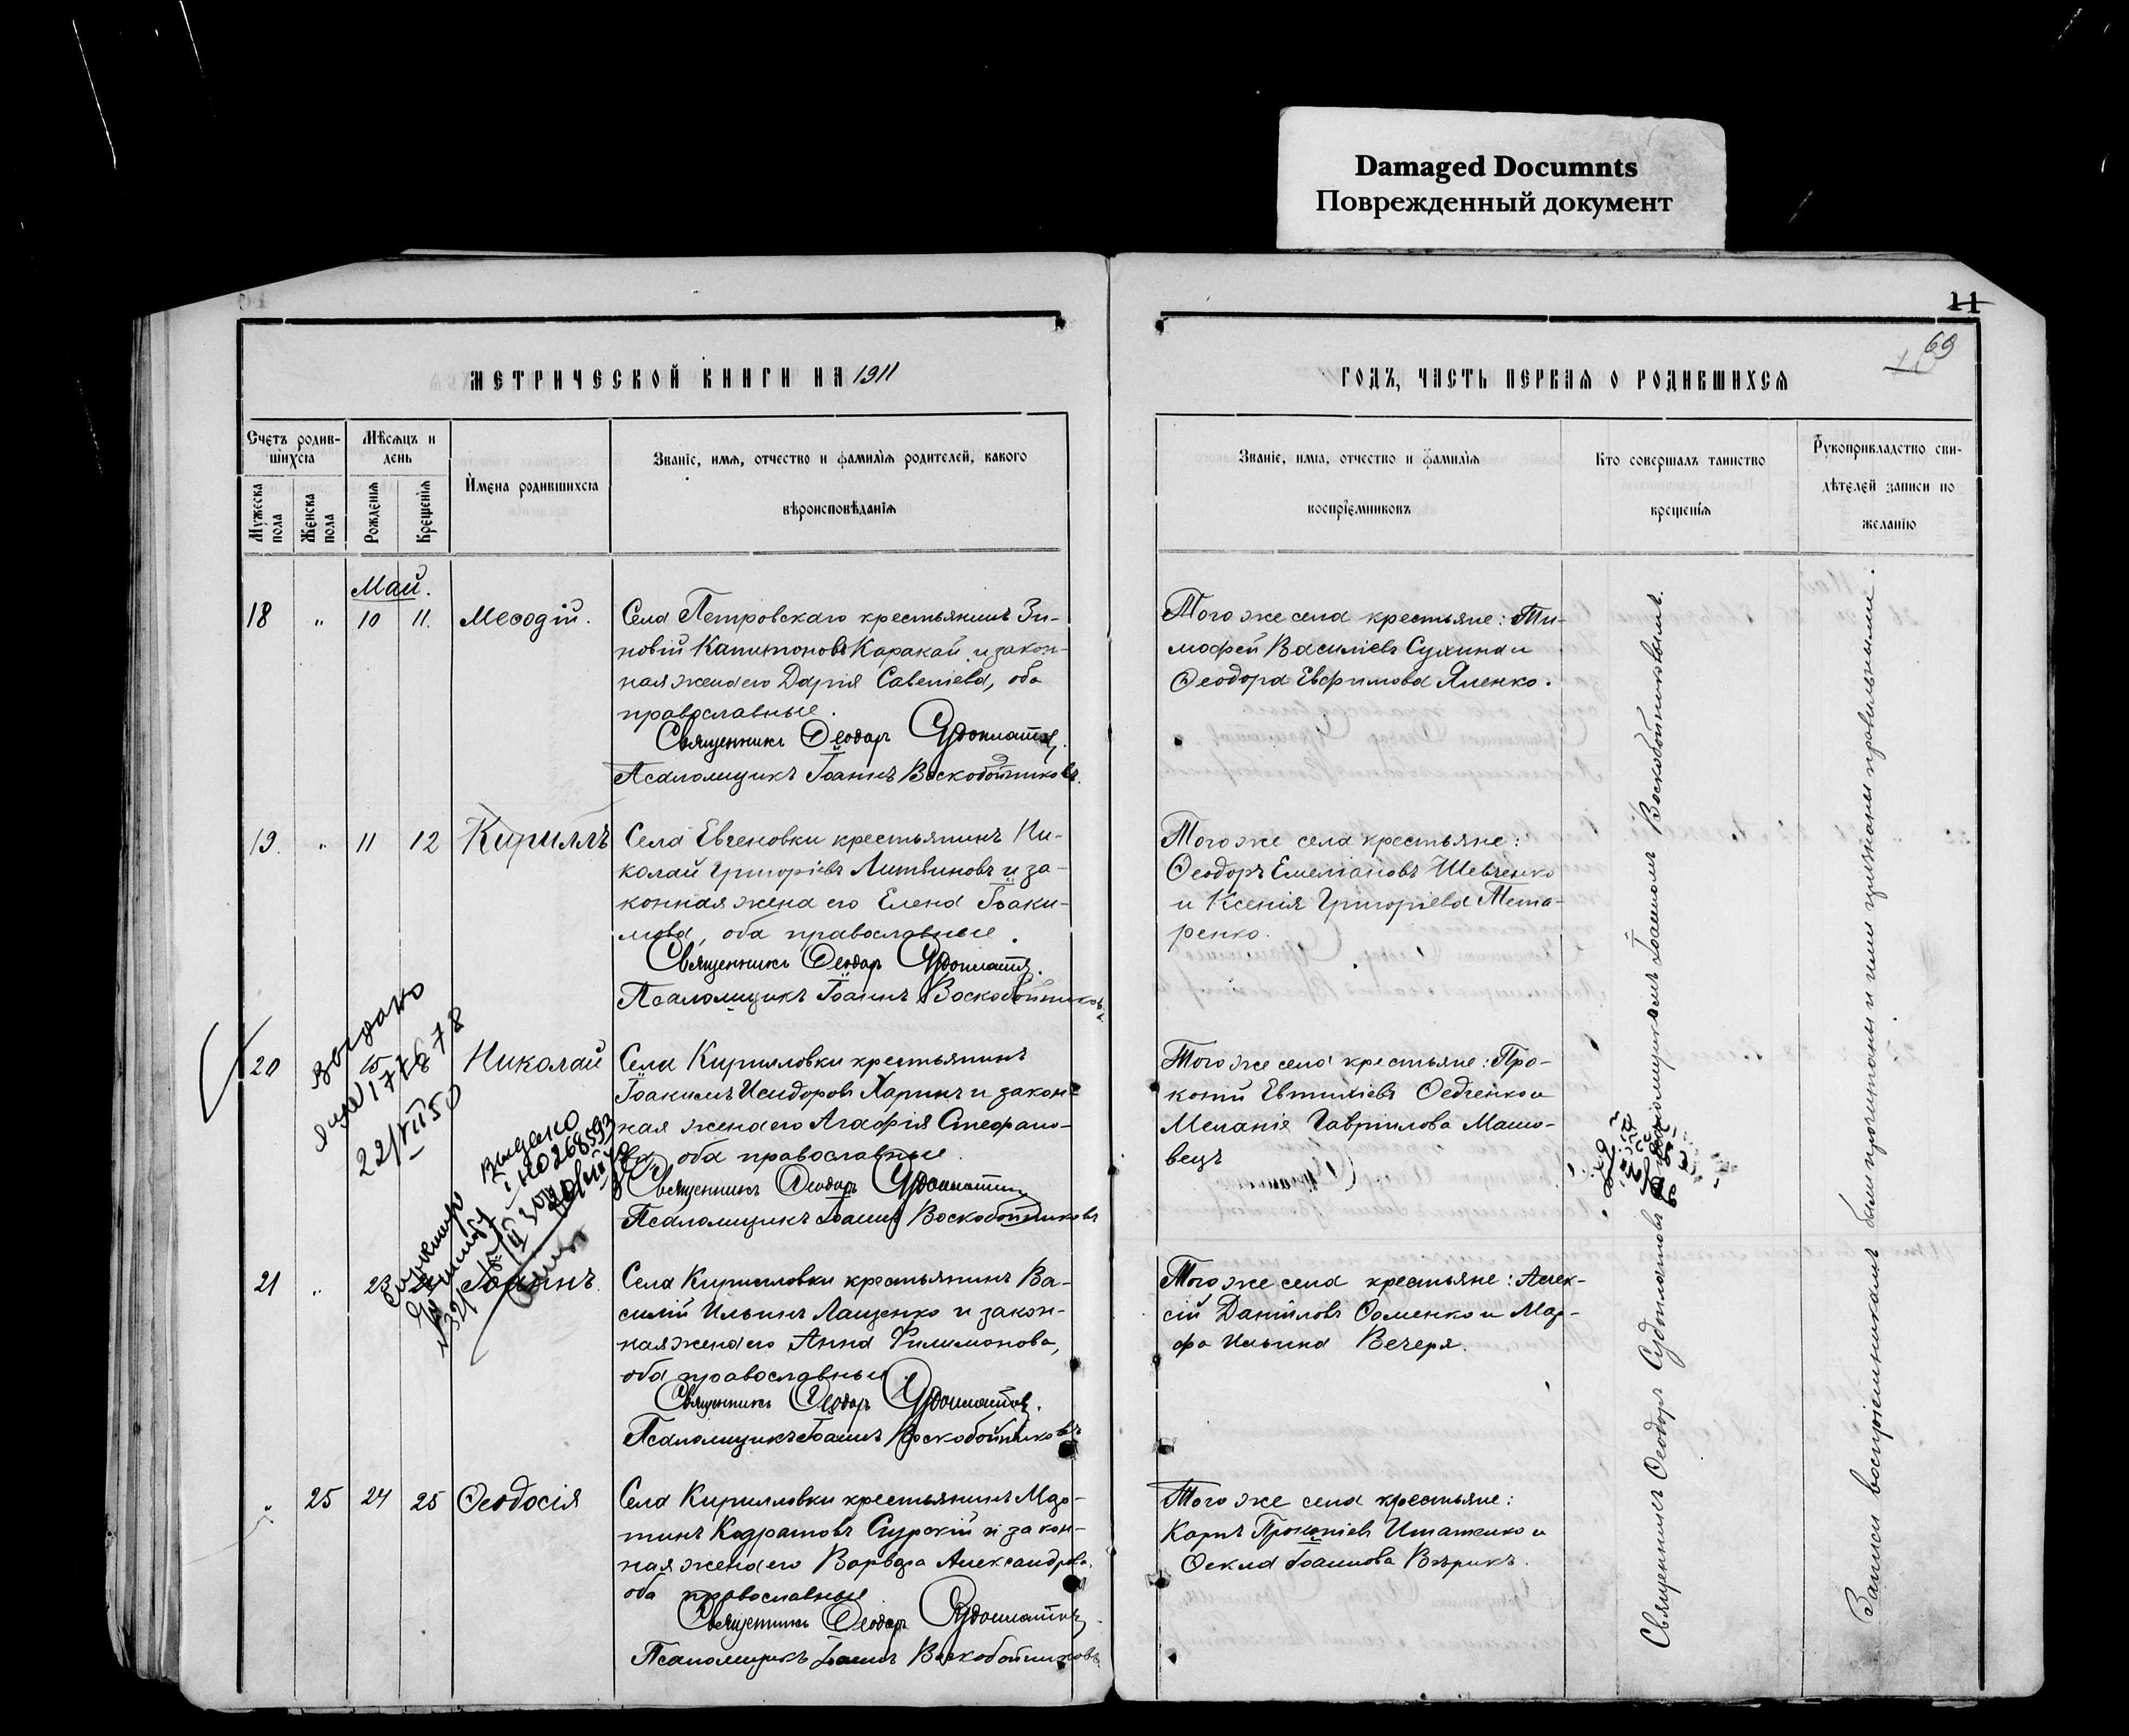 Damaged Documnts
Поврежденный документ
11
69
МЕТРИЧЕСКОЙ КНИГИ НА 1911
ГОДЪ, ЧАСТЬ ПЕРВАЯ О РОДИВШИХСЯ
Счетъ родив-
шихся
Мѣсяцъ и
день
Мужеска
пола
Женска
пола
Рожденія
Крещенія
Имена родившихся
Званіе, имя, отчество и фамилія родителей, какого
вѣроисповѣданія
Званіе, имя, отчество и фамилія
воспріемниковъ
Кто совершалъ таинство
крещенія
Рукоприкладство сви-
дѣтелей записи по
желанію
Май.
18 " 10 11. Меѳодій.
Села Петровскаго крестьянинъ Зи-
новій Капитоновъ Каракай и закон-
ная жена его Дарія Савеліева, оба
православные.
Священникъ Ѳеодоръ Судоплатовъ.
Псаломщикъ Іоаннъ Воскобойниковъ.
Того же села крестьяне: Ти-
мофей Василіевъ Сухина и
Ѳеодора Евфимова Яленко.
19. " 11 12 Кириллъ
Села Евгеновки крестьянинъ Ни-
колай Григоріевъ Литвиновъ и за-
конная жена его Елена Іоаки-
мова, оба православные.
Священникъ Ѳеодоръ Судоплатовъ.
Псаломщикъ Іоаннъ Воскобойниковъ
Того же села крестьяне:
Ѳеодоръ Емеліановъ Шевченко
и Ксенія Григоріева Тета-
ренко.
Выдано
22/VII 50
20 15 Николай
Села Кирилловки крестьянинъ
Іоакимъ Исидоровъ Харинъ и закон-
ная жена его Агафія Стефано-
ва, оба православные.
Священникъ Ѳеодоръ Судоплатовъ
Псаломщикъ Іоаннъ Воскобойниковъ
Того же села крестьяне: Про-
копій Евтихіевъ Ѳедченко и
Меланія Гавріилова Машо-
вецъ
Выдано
21 " 23 Іоаннъ.
Села Кирилловки крестьянинъ Ва-
силій Ильинъ Лащенко и закон-
ная жена его Анна Филимонова,
оба православные.
Священникъ Ѳеодоръ Судоплатовъ.
Псаломщикъ Іоаннъ Воскобойниковъ
Того же села крестьяне: Алек-
сій Даніиловъ Ѳоменко и Мар-
фа Ильина Вечеря.
" 25 24 25 Ѳеодосія
Села Кирилловки крестьянинъ Мар-
тинъ Кодратовъ Сгурскій и закон-
ная жена его Варвара Александрова,
оба православные
Священникъ Ѳеодоръ Судоплатовъ
Псаломщикъ Іоаннъ Воскобойниковъ.
Того же села крестьяне:
Карпъ Прокопіевъ Игнатенко и
Ѳекла Іоаннова Вѣрикъ.
Священникъ Ѳеодоръ Судоплатовъ псаломщикомъ Іоанномъ Воскобойниковымъ.
Записи воспріемникамъ были прочитаны и ими признаны правильными.